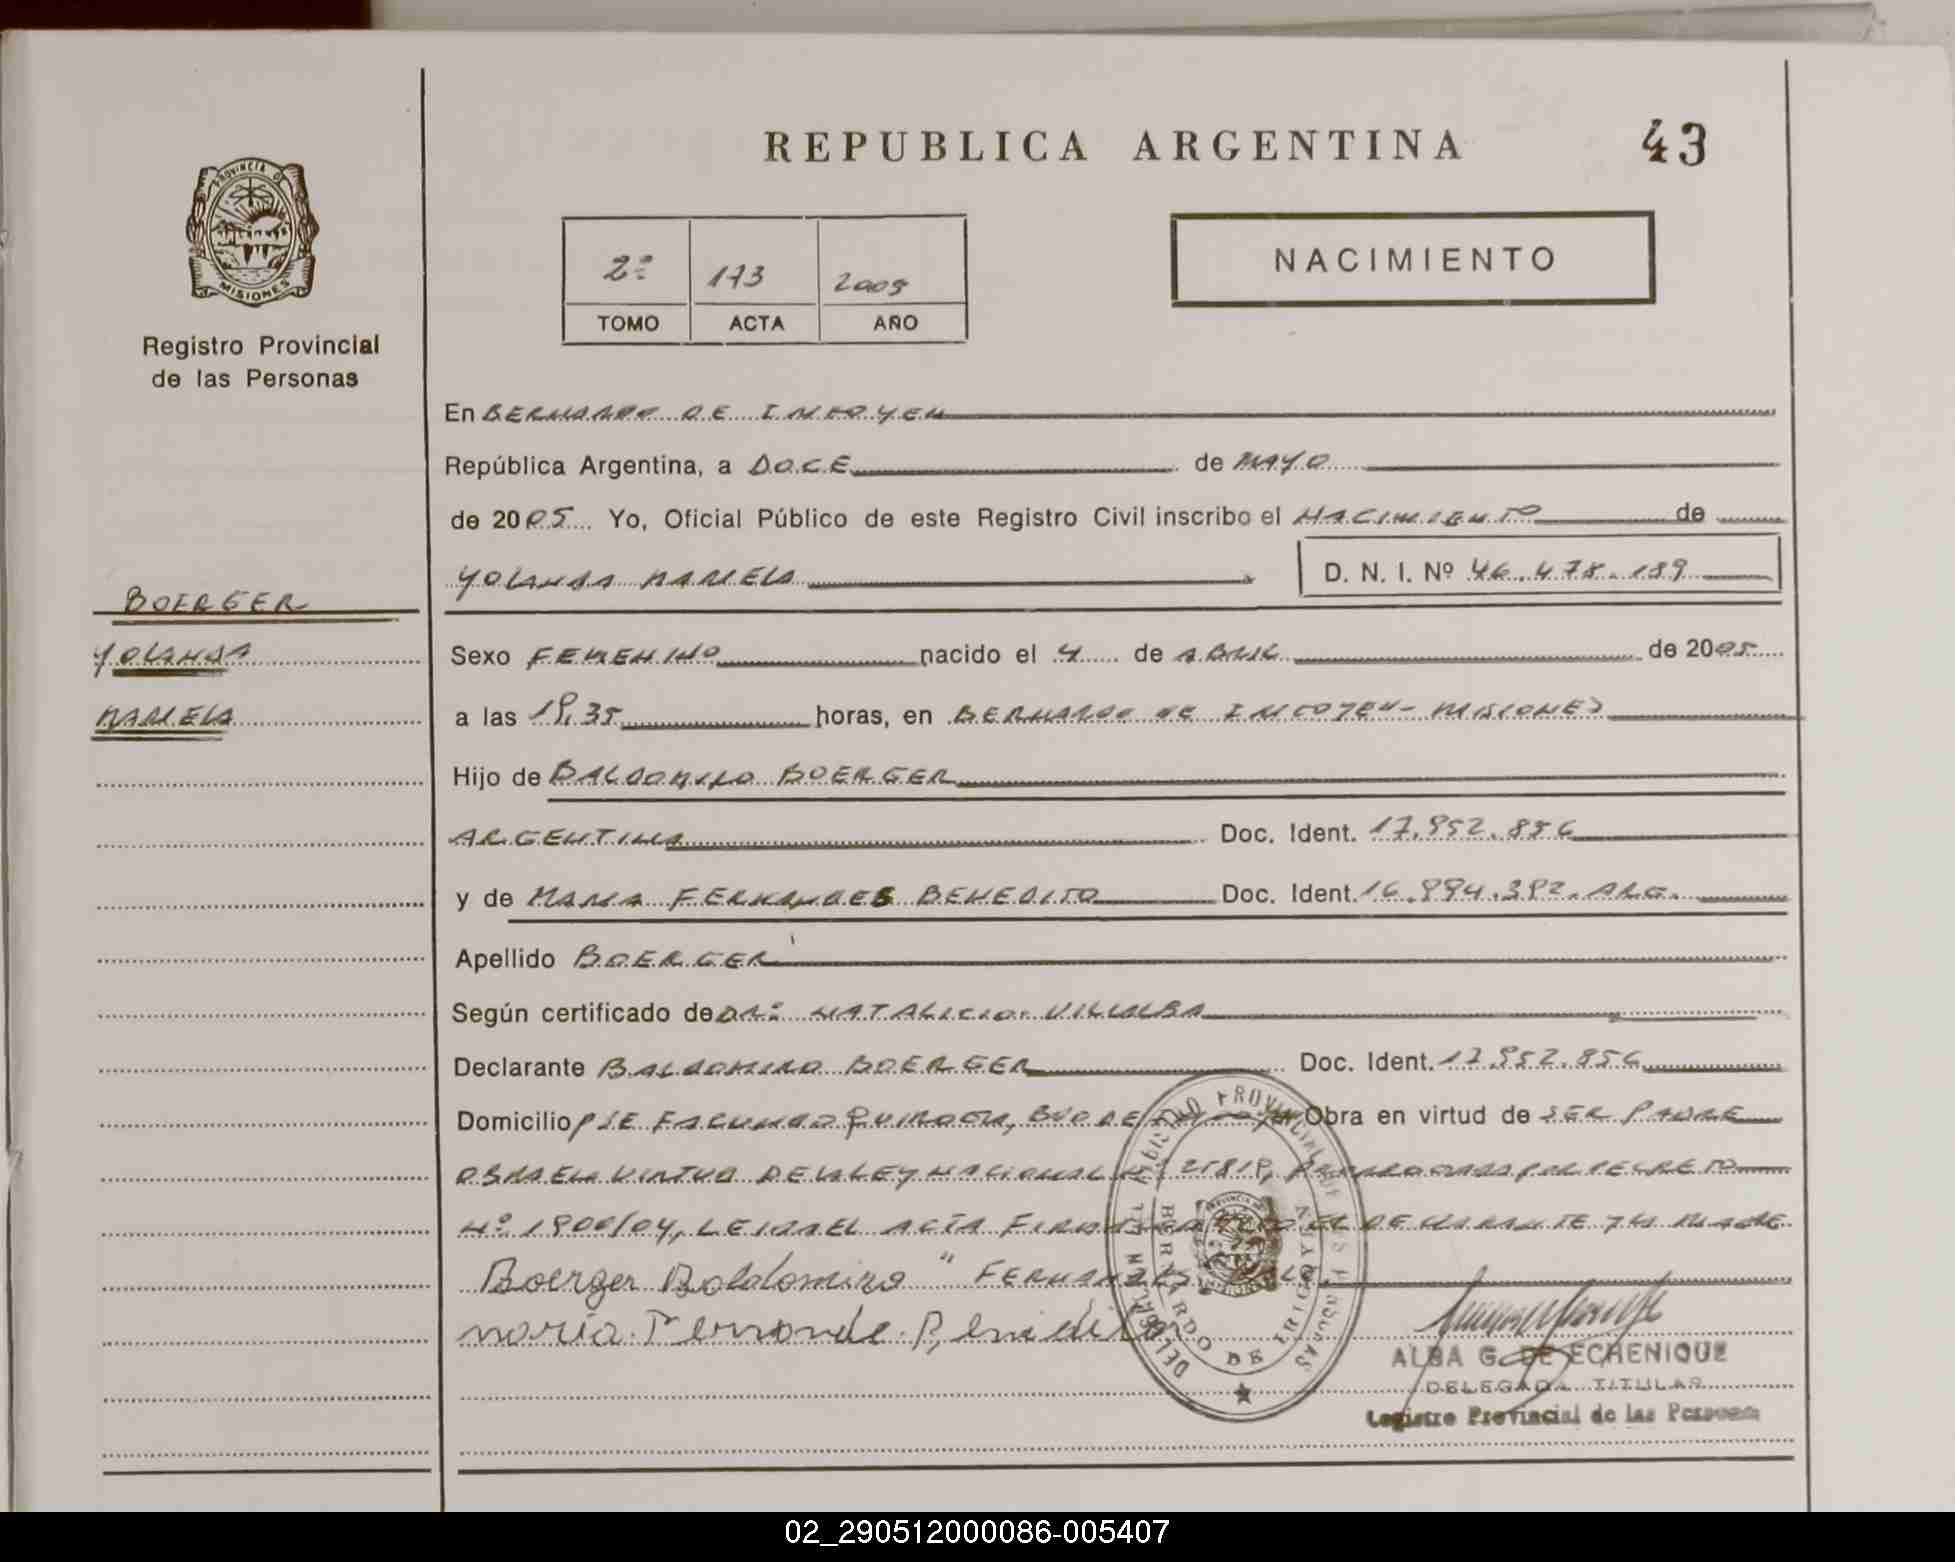 REPUBLICA ARGENTINA 43
PROVINCIA DE
MISIONES
Registro Provincial
de las Personas
2º 173 2005
TOMO ACTA AÑO
NACIMIENTO
En BERNARDO DE IRIGOYEN
República Argentina, a DOCE de MAYO
de 2005 Yo, Oficial Público de este Registro Civil inscribo el NACIMIENTO de
YOLANDA MARIELA D. N. I. Nº 46.478.189
BOERGER
YOLANDA
MARIELA
Sexo FEMENINO nacido el 4 de ABRIL de 2005
a las 19,35 horas, en BERNARDO DE IRIGOYEN - MISIONES
Hijo de BALDOMIRO BOERGER
ARGENTINA Doc. Ident. 17.952.856
y de MARIA FERNANDES BENEDITO Doc. Ident. 16.994.392. ARG.
Apellido BOERGER
Según certificado de DR: NATALICIO VILLALBA
Declarante BALDOMIRO BOERGER Doc. Ident. 17.952.856
Domicilio PJE FACUNDO QUIROGA, BDO DE Obra en virtud de SER PADRE
OBRA EN VIRTUD DE LA LEY NACIONAL Nº PRORROGADA POR DECRETO
Nº 1900/04, LEIDA EL ACTA EL DECLARANTE Y LA MADRE
Boerger Boldomiro " FERNANDES
maria Fernande Benidito
DELEGACION DEL REGISTRO PROVINCIAL DE LAS PERSONAS
BERNARDO DE IRIGOYEN
ALBA G. DE ECHENIQUE
DELEGADA TITULAR
Registro Provincial de las Personas
02_290512000086-005407